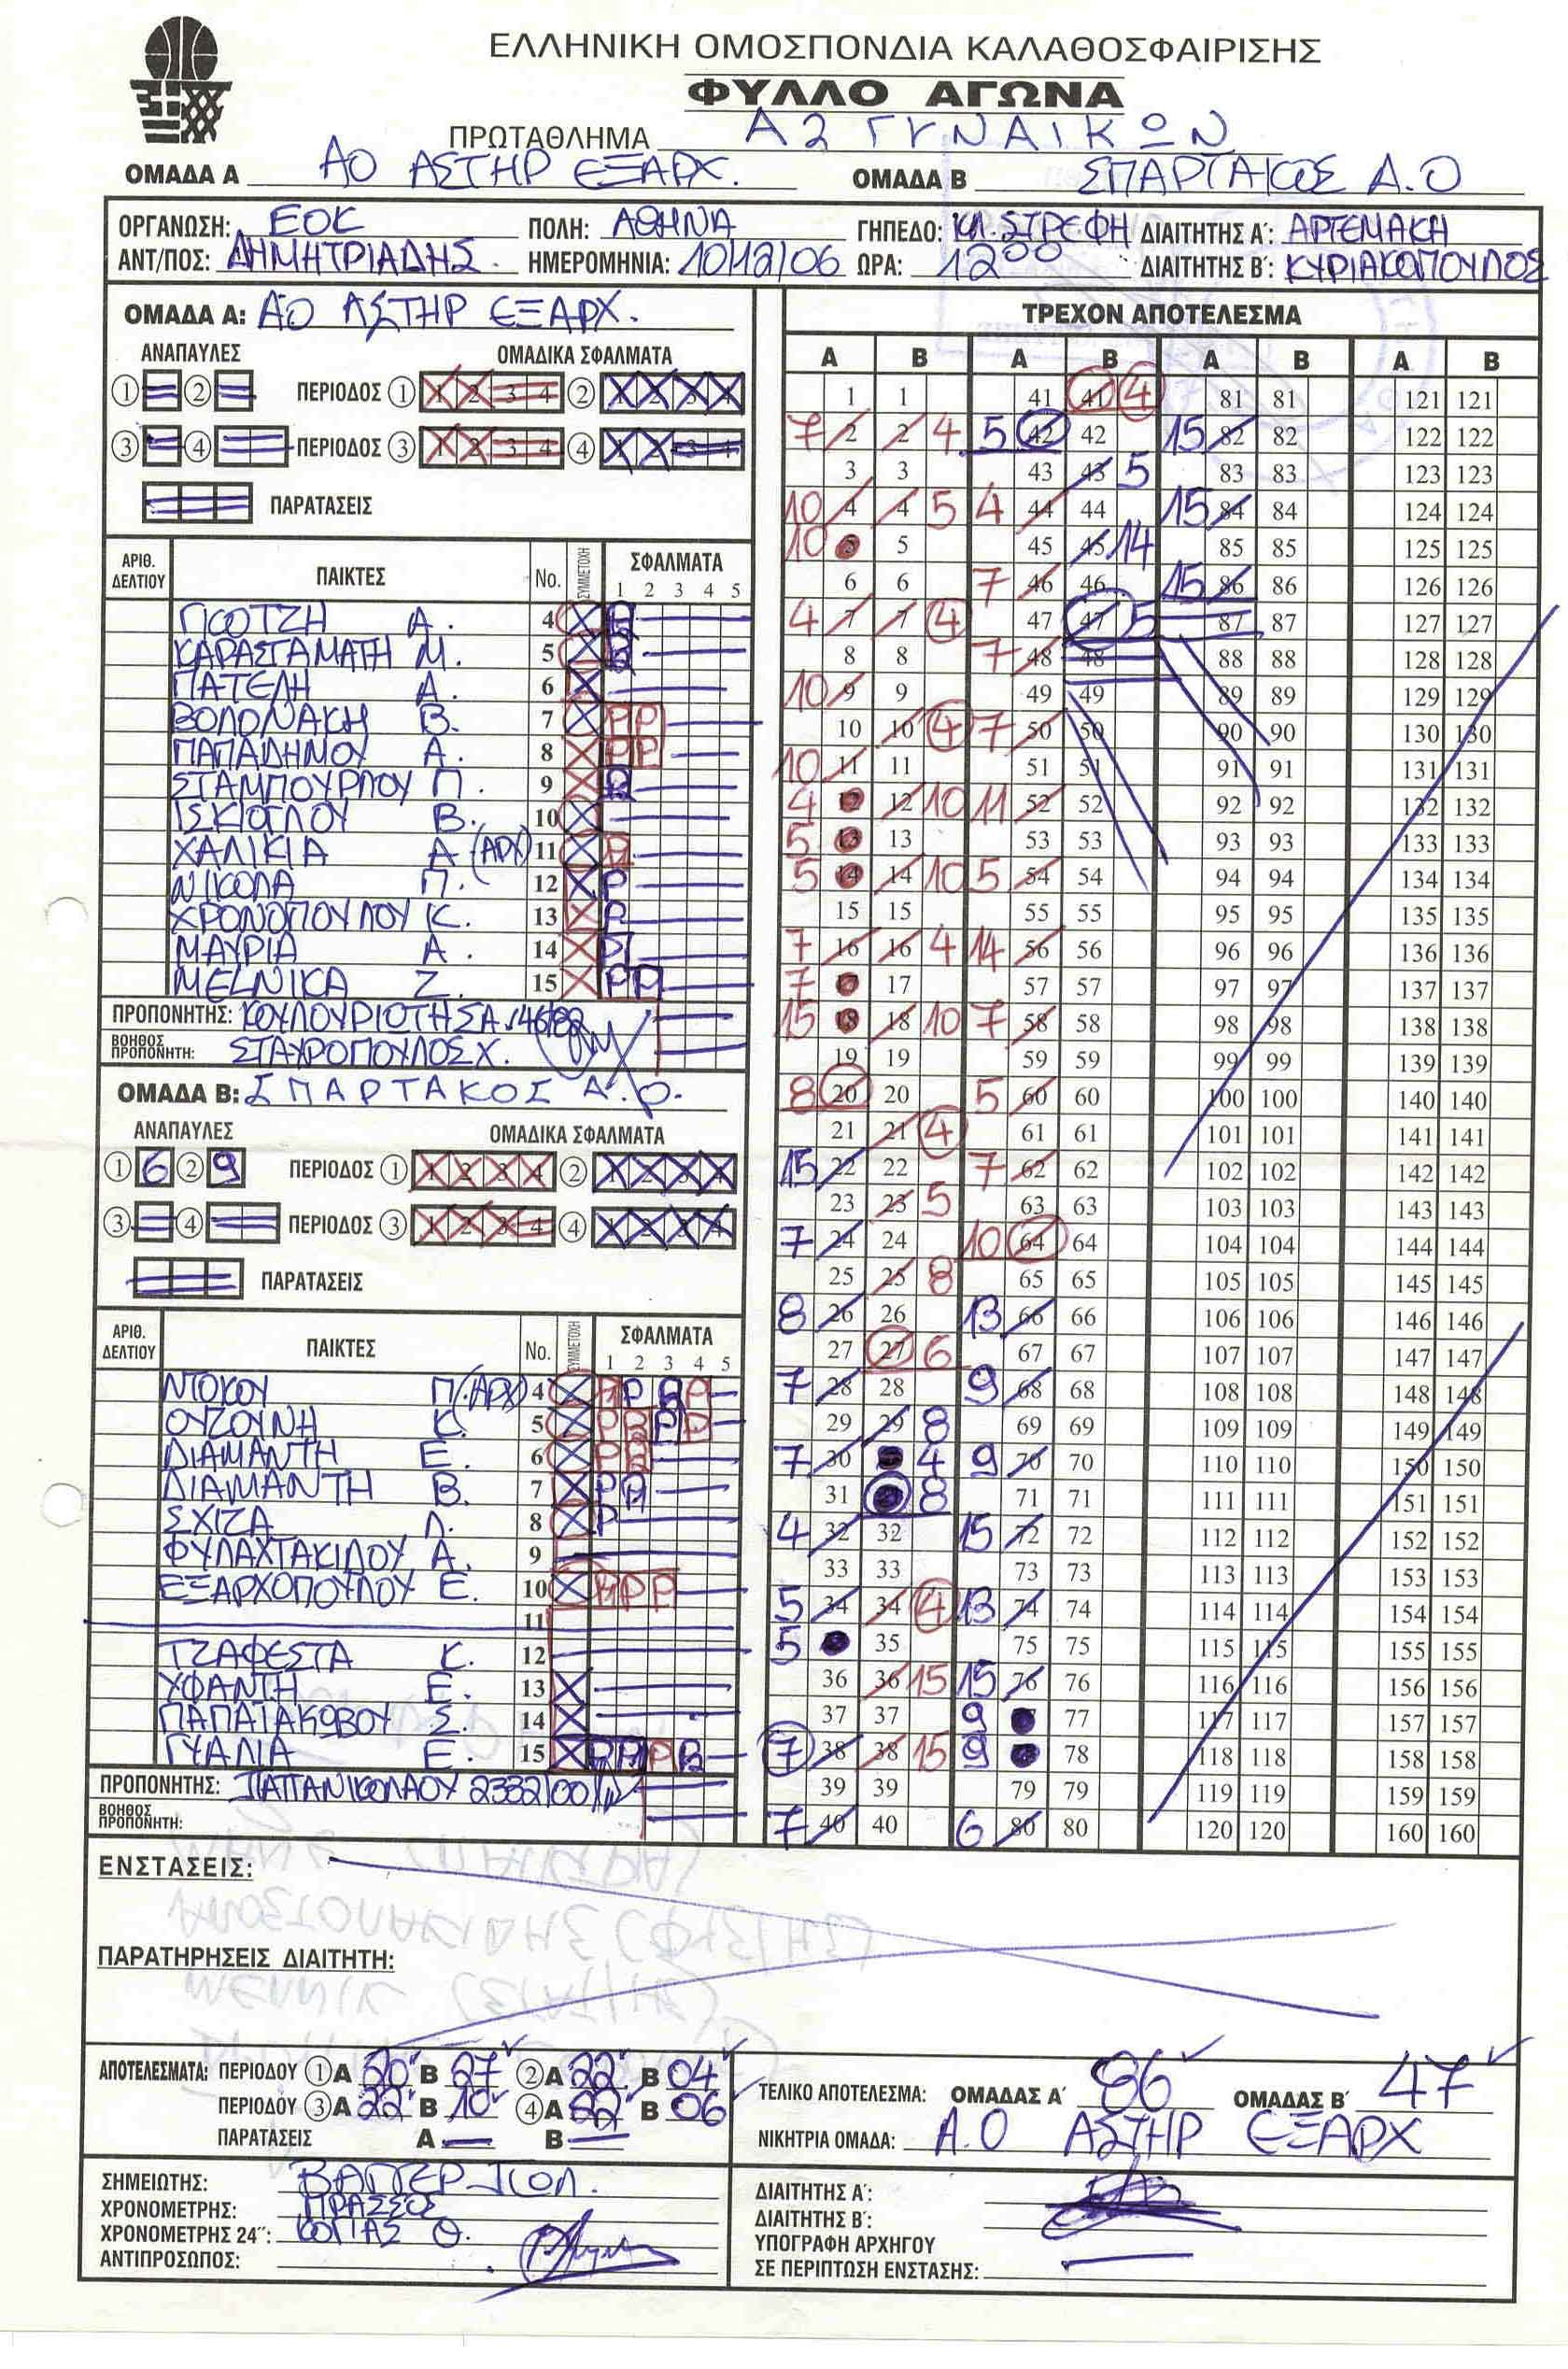 ΕΛΛΗΝΙΚΗ ΟΜΟΣΠΟΝΔΙΑ ΚΑΛΑΘΟΣΦΑΙΡΙΣΗΣ
ΦΥΛΛΟ ΑΓΩΝΑ
ΠΡΩΤΑΘΛΗΜΑ Α2 ΓΥΝΑΙΚΩΝ
ΟΜΑΔΑ Α ΑΟ ΑΣΤΗΡ ΕΞΑΡΧ. ΟΜΑΔΑ Β ΣΠΑΡΤΑΚΟΣ Α.Ο
ΟΡΓΑΝΩΣΗ: ΕΟΚ ΠΟΛΗ: ΑΘΗΝΑ ΓΗΠΕΔΟ: ΚΛ.ΣΤΡΕΦΗ ΔΙΑΙΤΗΤΗΣ Α΄: ΑΡΤΕΜΑΚΗ
ΑΝΤ/ΠΟΣ: ΔΗΜΗΤΡΙΑΔΗΣ ΗΜΕΡΟΜΗΝΙΑ: 10/12/06 ΩΡΑ: 12⁰⁰ ΔΙΑΙΤΗΤΗΣ Β΄: ΚΥΡΙΑΚΟΠΟΥΛΟΣ
ΟΜΑΔΑ Α: ΑΟ ΑΣΤΗΡ ΕΞΑΡΧ.
ΑΝΑΠΑΥΛΕΣ ΟΜΑΔΙΚΑ ΣΦΑΛΜΑΤΑ
① ② ΠΕΡΙΟΔΟΣ ① 1 2 3 4 ② 1 2 3 4
③ ④ ΠΕΡΙΟΔΟΣ ③ 1 2 3 4 ④ 1 2 3 4
ΠΑΡΑΤΑΣΕΙΣ
ΑΡΙΘ. ΔΕΛΤΙΟΥ ΠΑΙΚΤΕΣ No. ΣΥΜΜΕΤΟΧΗ ΣΦΑΛΜΑΤΑ
1 2 3 4 5
ΓΚΟΤΖΗ Α. 4
ΚΑΡΑΣΤΑΜΑΤΗ Μ. 5
ΠΑΤΕΛΗ Α. 6
ΒΟΛΟΝΑΚΗ Β. 7 P P
ΠΑΠΑΔΗΜΟΥ Α. 8 P P
ΣΤΑΜΠΟΥΡΛΟΥ Π. 9
ΙΣΚΙΟΓΛΟΥ Β. 10
ΧΑΛΙΚΙΑ Α (ΑΡΧ) 11
ΝΙΚΟΛΑ Π. 12 P
ΧΡΟΝΟΠΟΥΛΟΥ Κ. 13 P
ΜΑΥΡΙΑ Α. 14 P
MELNIKA Z. 15 P P
ΠΡΟΠΟΝΗΤΗΣ: ΚΟΥΛΟΥΡΙΩΤΗΣ Α.
ΒΟΗΘΟΣ ΠΡΟΠΟΝΗΤΗ: ΣΤΑΥΡΟΠΟΥΛΟΣ Χ.
ΟΜΑΔΑ Β: ΣΠΑΡΤΑΚΟΣ Α.Ο.
ΑΝΑΠΑΥΛΕΣ ΟΜΑΔΙΚΑ ΣΦΑΛΜΑΤΑ
① 6 ② 9 ΠΕΡΙΟΔΟΣ ① 1 2 3 4 ② 1 2 3 4
③ ④ ΠΕΡΙΟΔΟΣ ③ 1 2 3 4 ④ 1 2 3 4
ΠΑΡΑΤΑΣΕΙΣ
ΑΡΙΘ. ΔΕΛΤΙΟΥ ΠΑΙΚΤΕΣ No. ΣΥΜΜΕΤΟΧΗ ΣΦΑΛΜΑΤΑ
1 2 3 4 5
ΝΤΟΚΟΥ Π (ΑΡΧ) 4
ΟΥΖΟΥΝΗ Κ. 5
ΔΙΑΜΑΝΤΗ Ε. 6
ΔΙΑΜΑΝΤΗ Β. 7
ΣΧΙΖΑ Λ. 8 P
ΦΥΛΑΧΤΑΚΙΔΟΥ Α. 9
ΕΞΑΡΧΟΠΟΥΛΟΥ Ε. 10
11
ΤΖΑΦΕΣΤΑ Κ. 12
ΥΦΑΝΤΗ Ε. 13
ΠΑΠΑΙΑΚΩΒΟΥ Σ. 14
ΓΥΑΛΙΑ Ε. 15
ΠΡΟΠΟΝΗΤΗΣ: ΠΑΠΑΝΙΚΟΛΑΟΥ 2332/00
ΒΟΗΘΟΣ ΠΡΟΠΟΝΗΤΗ:
ΤΡΕΧΟΝ ΑΠΟΤΕΛΕΣΜΑ
Α Β Α Β Α Β Α Β
1 1 41 41 4 81 81 121 121
7 2 2 4 5 42 42 15 82 82 122 122
3 3 43 43 5 83 83 123 123
10 4 4 5 4 44 44 15 84 84 124 124
10 5 45 45 14 85 85 125 125
6 6 7 46 46 15 86 86 126 126
4 7 7 4 47 47 5 87 87 127 127
8 8 7 48 48 88 88 128 128
10 9 9 49 49 89 89 129 129
10 10 4 7 50 50 90 90 130 130
10 11 11 51 51 91 91 131 131
4 12 12 10 11 52 52 92 92 132 132
5 13 13 53 53 93 93 133 133
5 14 14 10 5 54 54 94 94 134 134
15 15 55 55 95 95 135 135
7 16 16 4 14 56 56 96 96 136 136
7 17 57 57 97 97 137 137
15 18 18 10 7 58 58 98 98 138 138
19 19 59 59 99 99 139 139
8 20 20 5 60 60 100 100 140 140
21 21 4 61 61 101 101 141 141
15 22 22 7 62 62 102 102 142 142
23 23 5 63 63 103 103 143 143
7 24 24 10 64 64 104 104 144 144
25 25 8 65 65 105 105 145 145
8 26 26 13 66 66 106 106 146 146
27 27 6 67 67 107 107 147 147
7 28 28 9 68 68 108 108 148 148
29 29 8 69 69 109 109 149 149
7 30 4 9 70 70 110 110 150 150
31 8 71 71 111 111 151 151
4 32 32 15 72 72 112 112 152 152
33 33 73 73 113 113 153 153
5 34 34 4 13 74 74 114 114 154 154
5 35 75 75 115 115 155 155
36 36 15 15 76 76 116 116 156 156
37 37 9 77 117 117 157 157
7 38 38 15 9 78 118 118 158 158
39 39 79 79 119 119 159 159
7 40 40 6 80 80 120 120 160 160
ΕΝΣΤΑΣΕΙΣ:
ΠΑΡΑΤΗΡΗΣΕΙΣ ΔΙΑΙΤΗΤΗ:
ΑΠΟΤΕΛΕΣΜΑΤΑ: ΠΕΡΙΟΔΟΥ ① Α 20 Β 27 ② Α 22 Β 04
ΠΕΡΙΟΔΟΥ ③ Α 22 Β 10 ④ Α 22 Β 06
ΠΑΡΑΤΑΣΕΙΣ Α — Β —
ΤΕΛΙΚΟ ΑΠΟΤΕΛΕΣΜΑ: ΟΜΑΔΑΣ Α΄ 86 ΟΜΑΔΑΣ Β΄ 47
ΝΙΚΗΤΡΙΑ ΟΜΑΔΑ: Α.Ο ΑΣΤΗΡ ΕΞΑΡΧ
ΣΗΜΕΙΩΤΗΣ: ΒΑΓΓΕΡ
ΧΡΟΝΟΜΕΤΡΗΣ: ΠΡΑΣΣΟΣ
ΧΡΟΝΟΜΕΤΡΗΣ 24΄΄: Θ.
ΑΝΤΙΠΡΟΣΩΠΟΣ:
ΔΙΑΙΤΗΤΗΣ Α΄:
ΔΙΑΙΤΗΤΗΣ Β΄:
ΥΠΟΓΡΑΦΗ ΑΡΧΗΓΟΥ
ΣΕ ΠΕΡΙΠΤΩΣΗ ΕΝΣΤΑΣΗΣ: